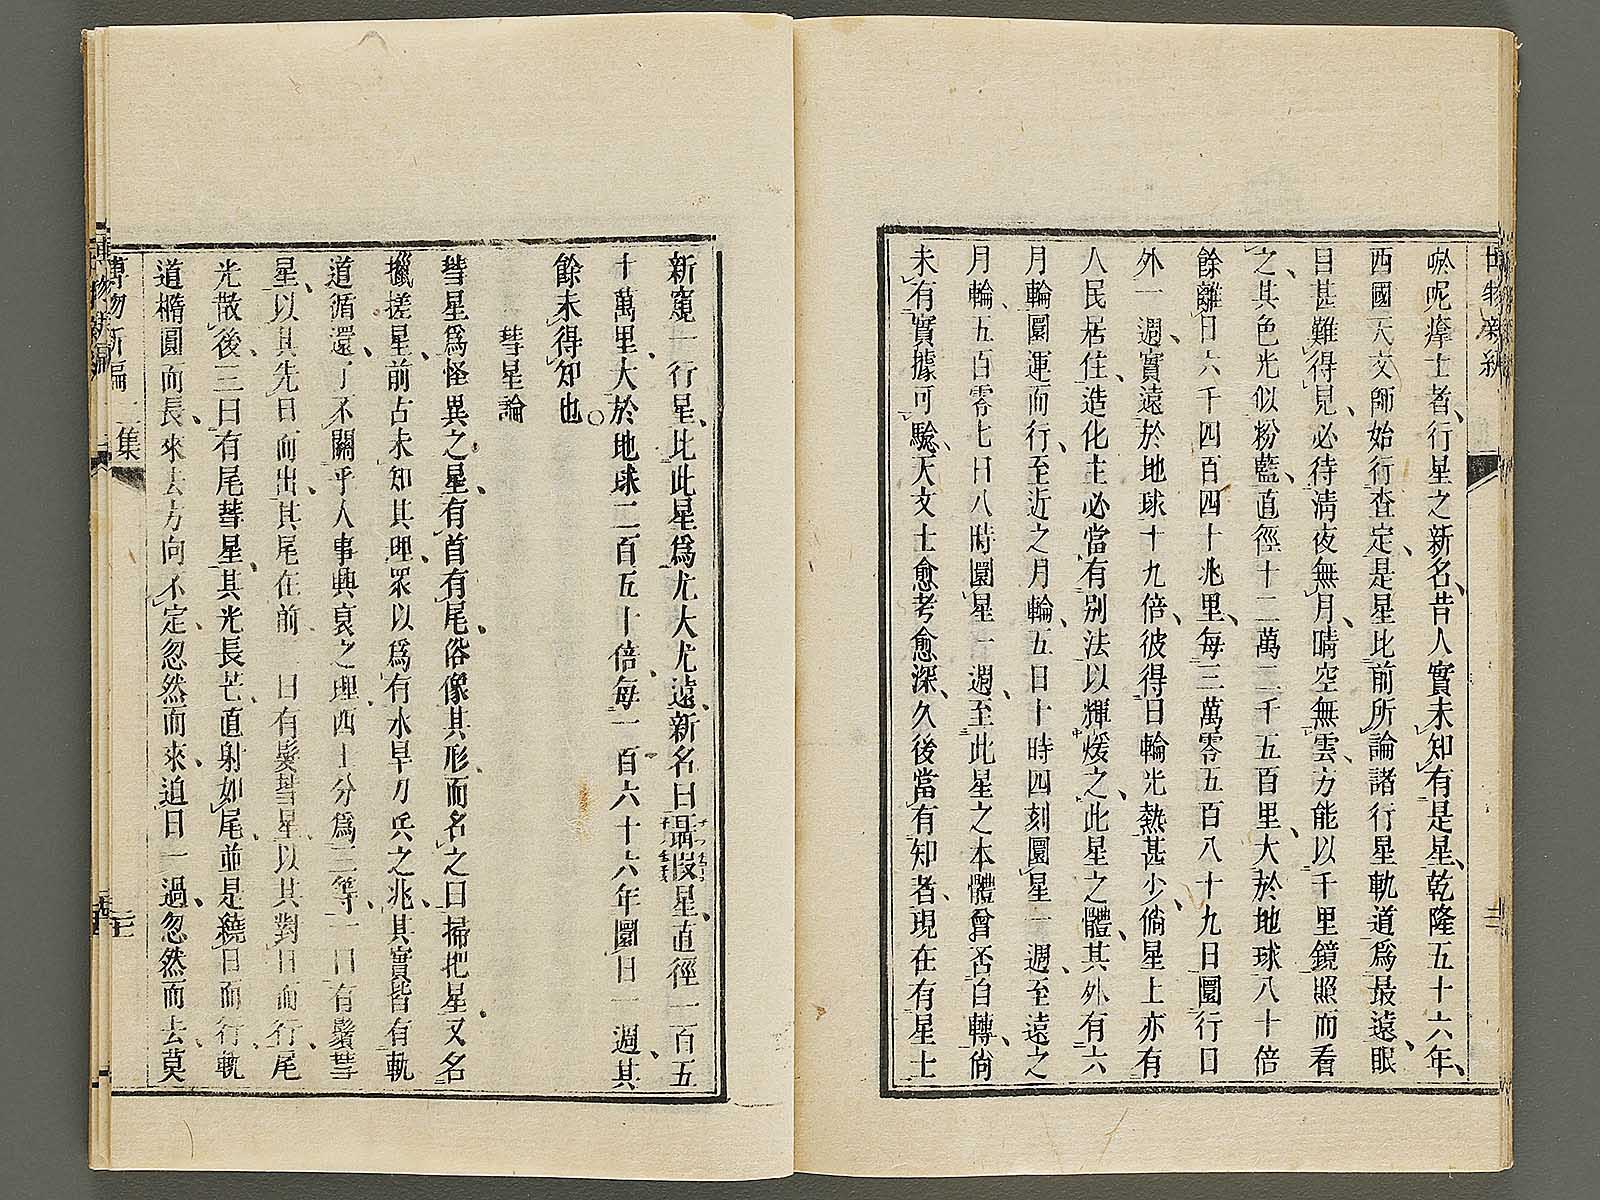 呢士者行星之新名昔人實未知有是星乾隆五十六年
西國天文師始行查定是星比前所論諸行星軌道爲最遠眼
目甚難得見必待淸夜無月晴空無雲方能以千里鏡照而看
之其色光似粉藍直徑十二萬二千五百里大於地球八十倍
餘離日六千四百四十兆里每三萬零五百八十九日圜行日
外一週實遠於地球十九倍彼得日輪光熱甚少倘星上亦有
人民居住造化主必當有别法以輝煖之此星之體其外有六
月輪圜運而行至近之月輪五日十時四刻圜星一週至遠之
月輪五百零七日八時圜星一週至此星之本體曾否自轉倘
未有實據可騐天文士愈考愈深久後當有知者現在有星士
新窺一行星比此星爲尤大尤遠新名曰星直徑一百五
十萬里大於地球二百五十倍每一百六十六年圜日一週其
餘未得知也
彗星論
彗星爲怪異之星有首有尾俗像其形而名之曰掃把星又名
攙搓星前占未知其理眾以爲有水旱刀兵之兆其實皆有軌
道循還了不關乎人事興衰之理西士分爲三等一曰有鬚彗
星以其先日而出其尾在前一曰有髮彗星以其對日而行尾
光散後三曰有尾彗星其光長芒直射如尾並是繞日而行軌
道橢圓而長來去方向不定忽然而來迫日一過忽然而去莫
博物新編
集